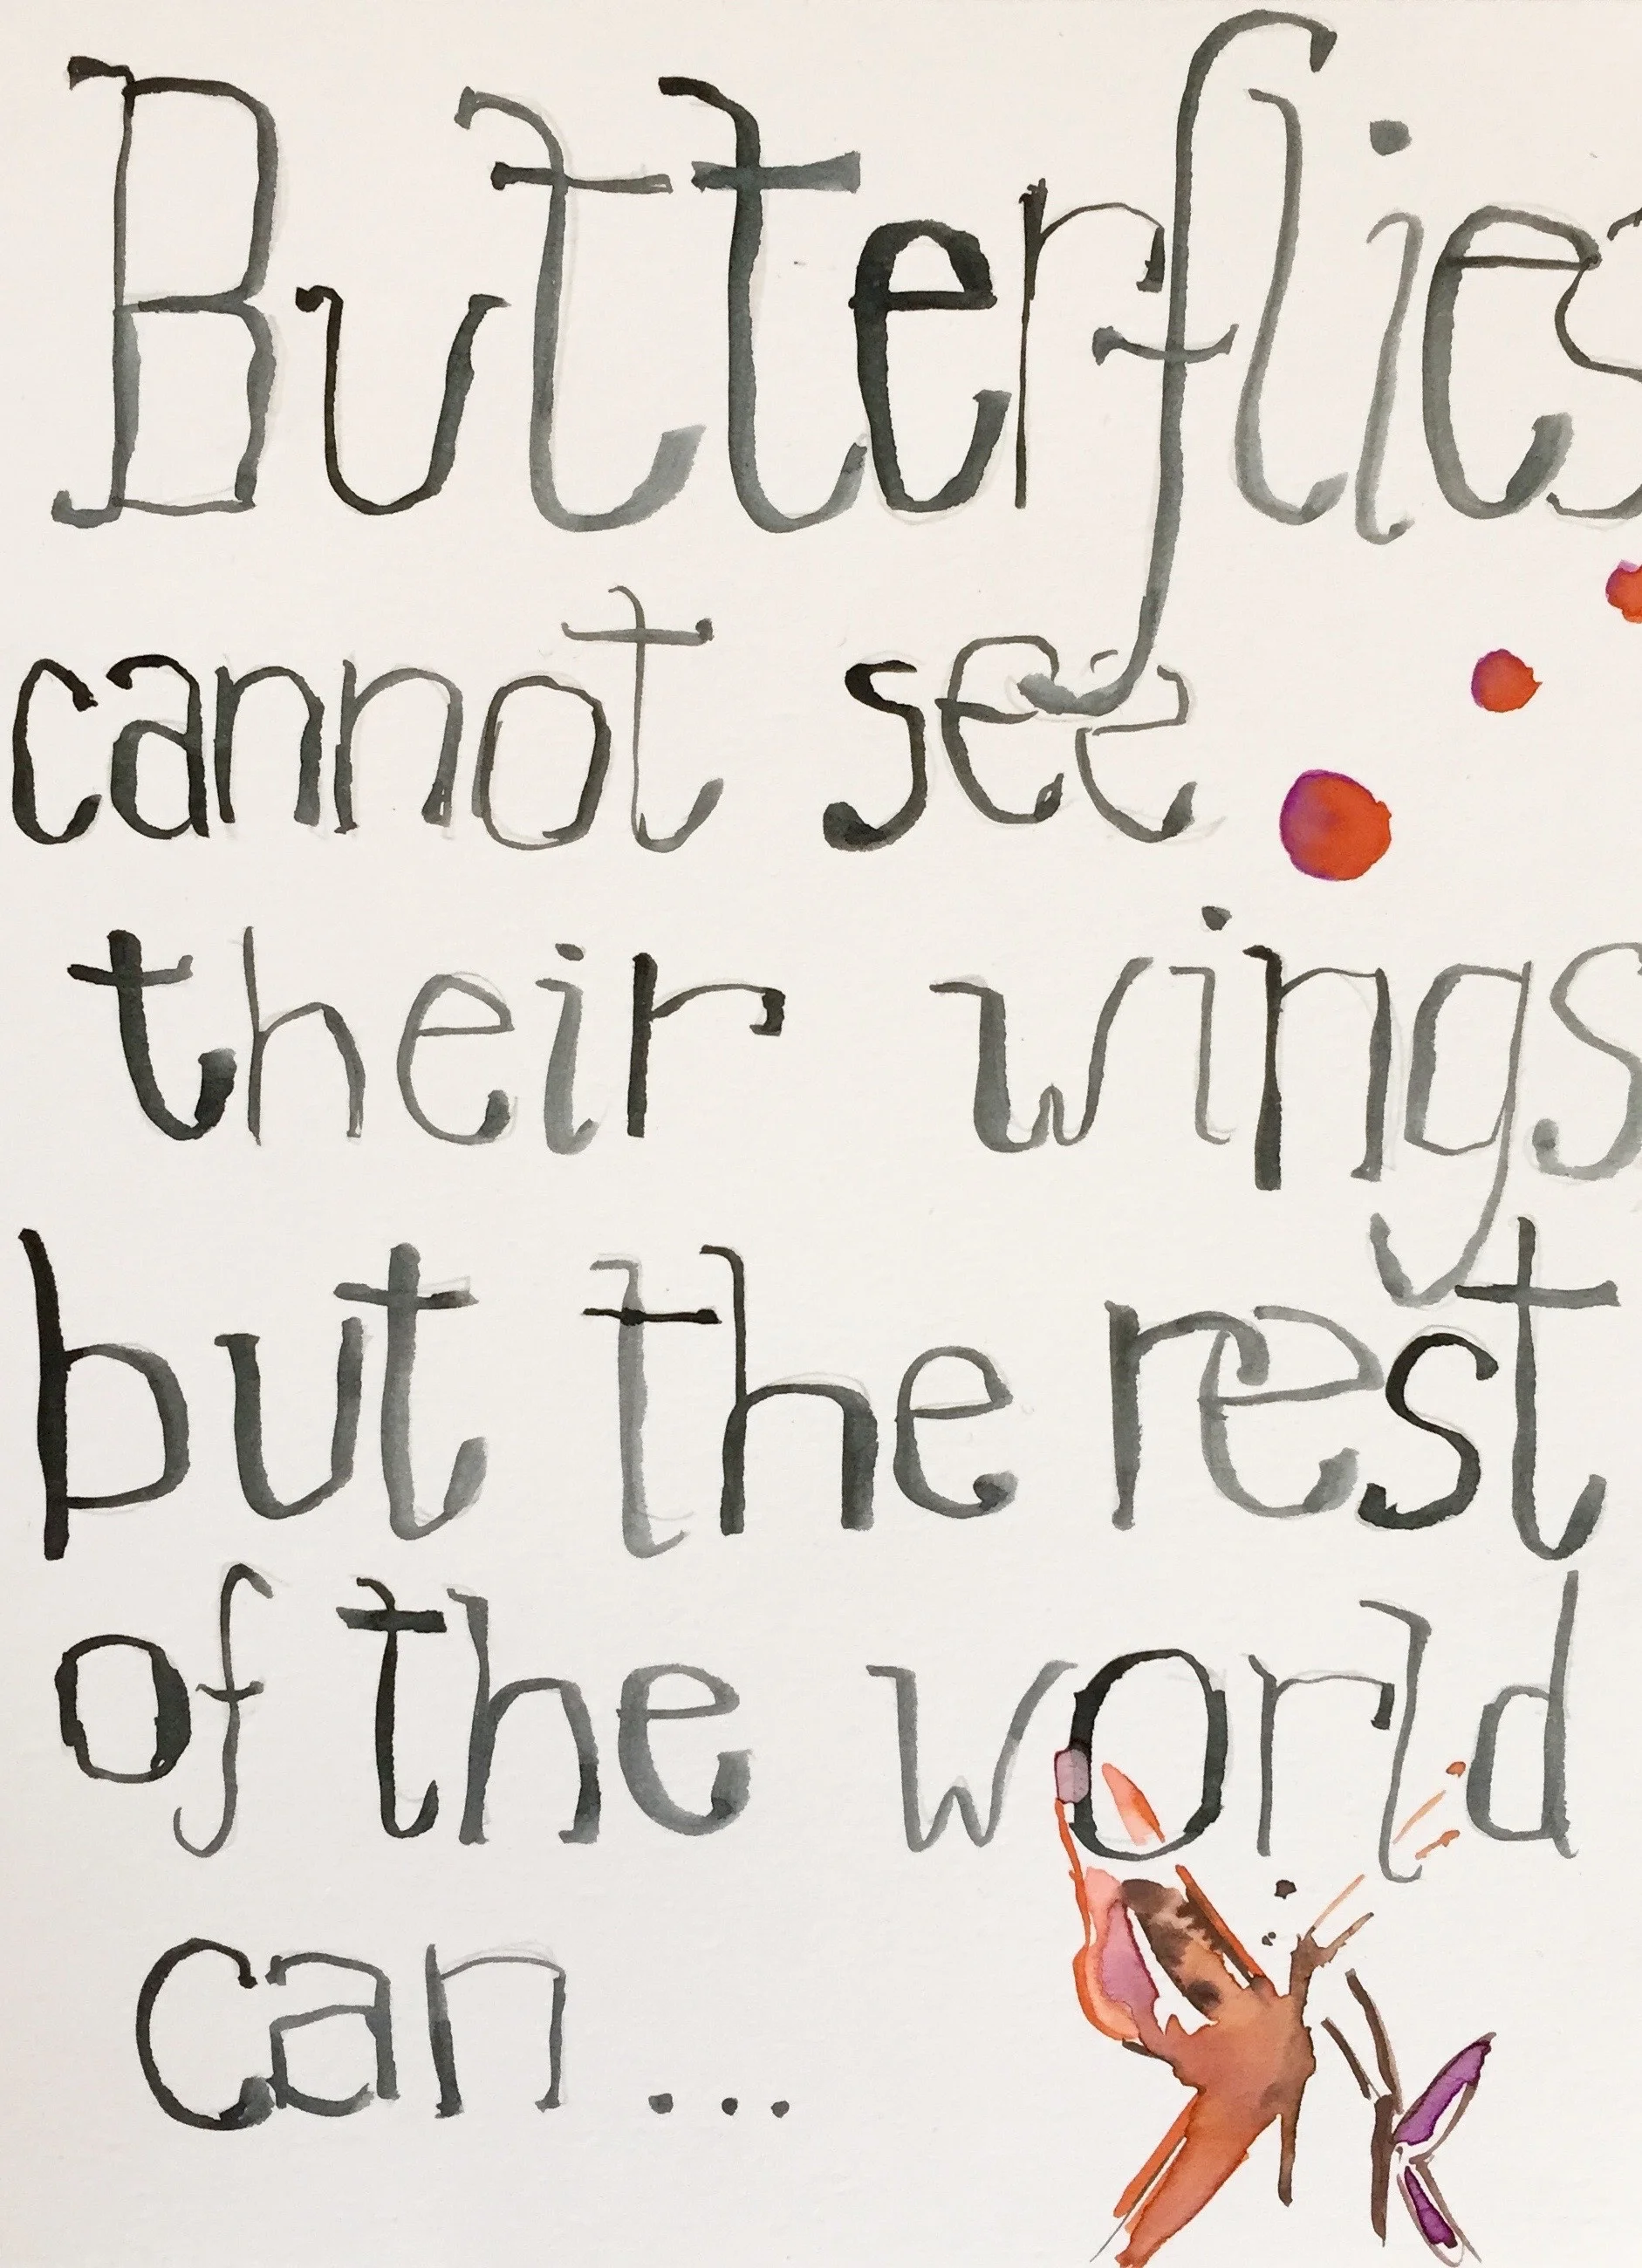 Butterflies
cannot see
their wings
but the rest
of the world
can...